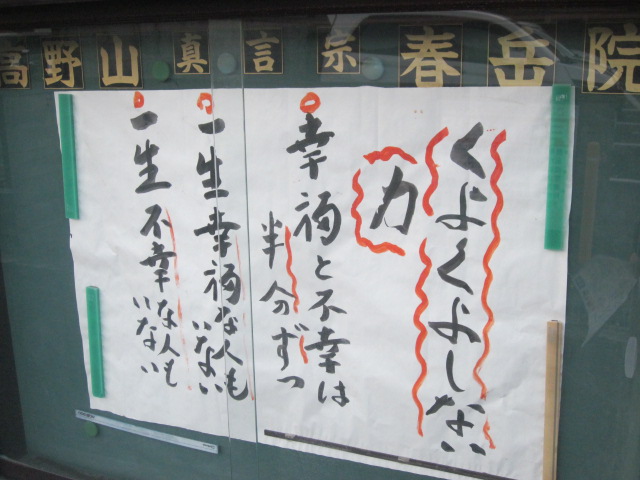 高野山 真言宗 春岳院
くよくよしない
力
幸福と不幸は
半分ずつ
一生幸福な人も
いない
一生不幸な人も
いない